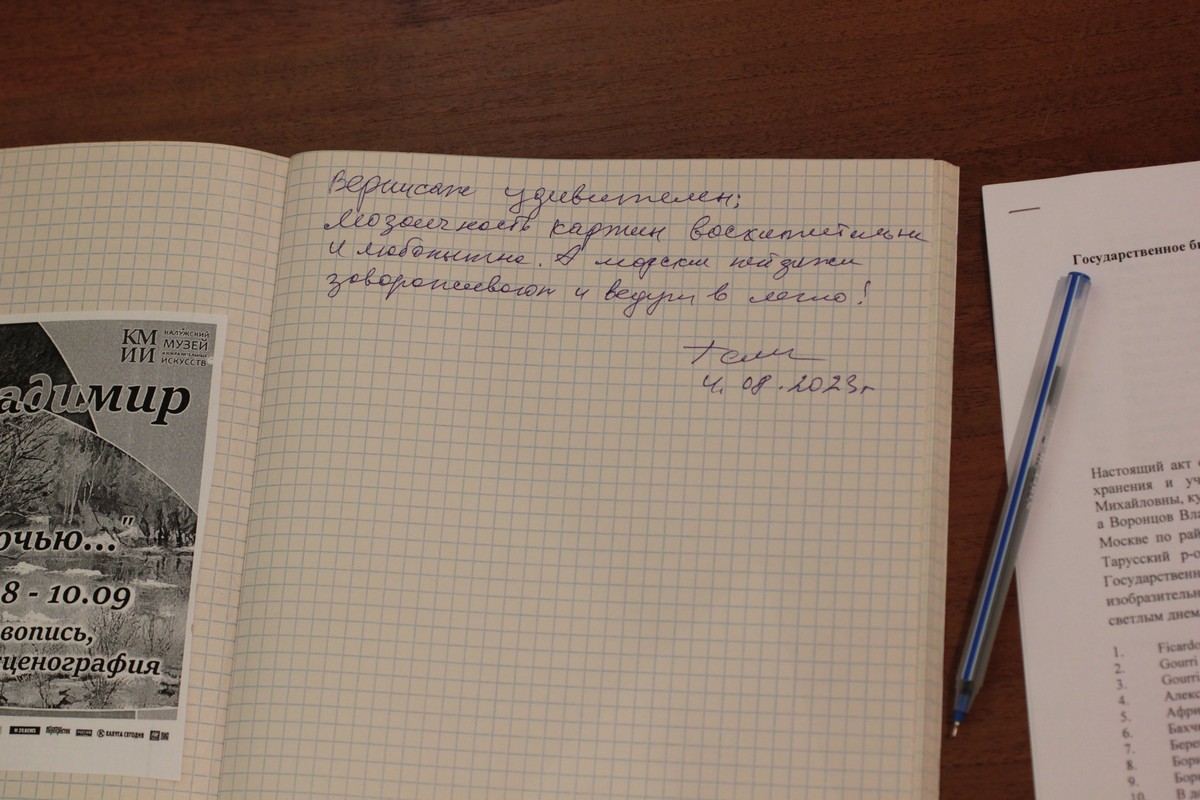 Вернисаж удивителен;
мозаичность картин восхитительна
и любопытна. А морские пейзажи
завораживают и ведут в лето!
4.08.2023г
КМ
ИИ
КАЛУЖСКИЙ
МУЗЕЙ
ИЗОБРАЗИТЕЛЬНЫХ
ИСКУССТВ
адимир
очью..."
8 - 10.09
вопись,
сценография
КАЛУГА СЕГОДНЯ
Государственное б
Настоящий акт
хранения и уч
Михайловны, ку
а Воронцов Вла
Москве по рай
Тарусский р-о
Государственн
изобразительн
светлым днем
1. Ficardo
2. Gourri
3. Gourri
4. Алекс
5. Афри
6. Бахч
7. Бере
8. Бори
9. Бори
10. В до